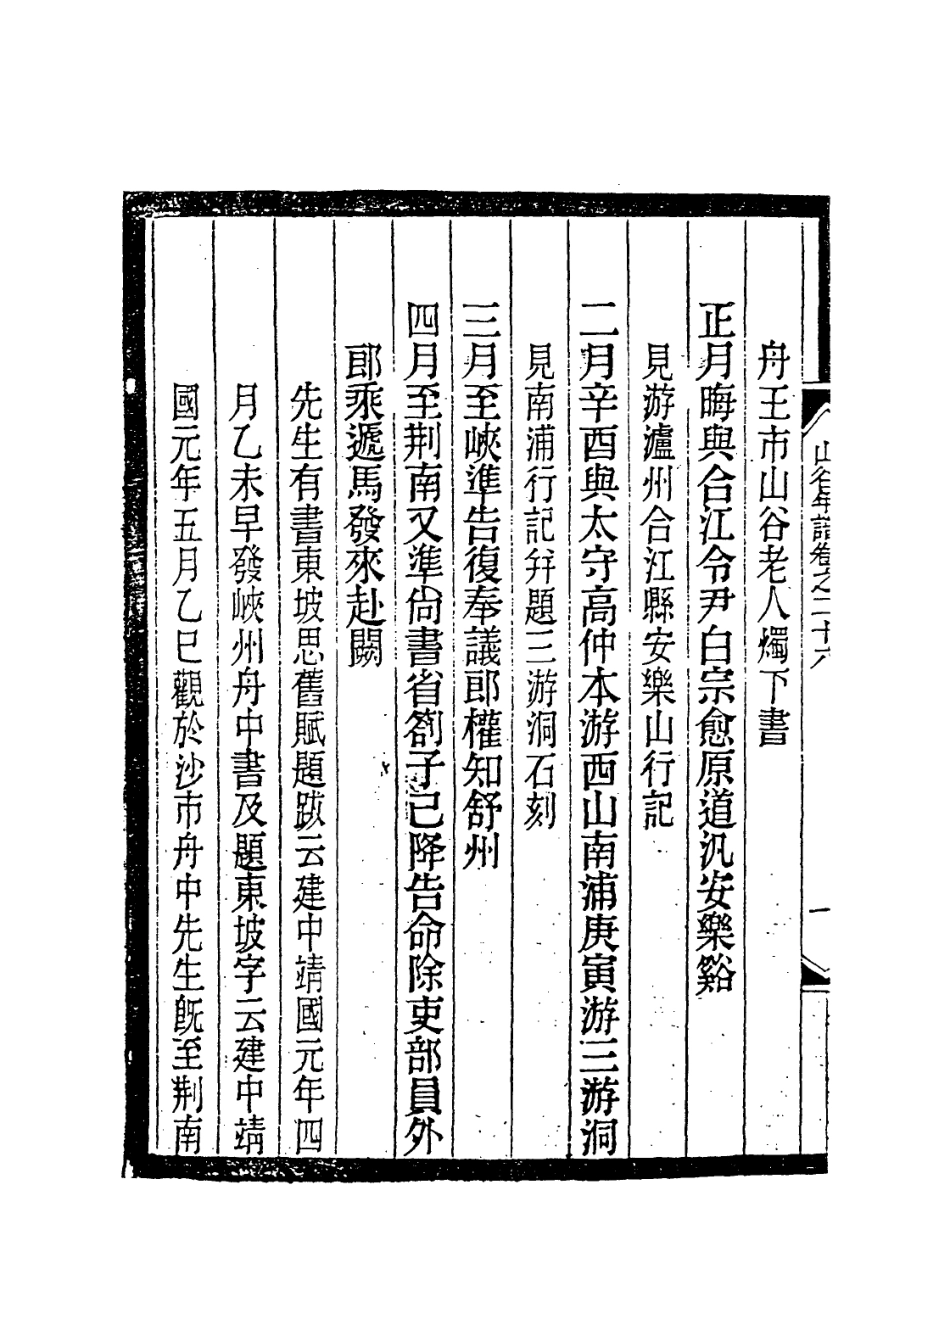 山谷年譜卷之二十六
一
舟王市山谷老人燭下書
正月晦與合江令尹白宗愈原道汎安樂谿
見游瀘州合江縣安樂山行記
二月辛酉與太守高仲本游西山南浦庚寅游三游洞
見南浦行記幷題三游洞石刻
三月至峽準告復奉議郎權知舒州
四月至荆南又準尙書省劄子已降告命除吏部員外
郎乘遞馬發來赴闕
先生有書東坡思舊賦題跋云建中靖國元年四
月乙未早發峽州舟中書及題東坡字云建中靖
國元年五月乙巳觀於沙市舟中先生旣至荆南